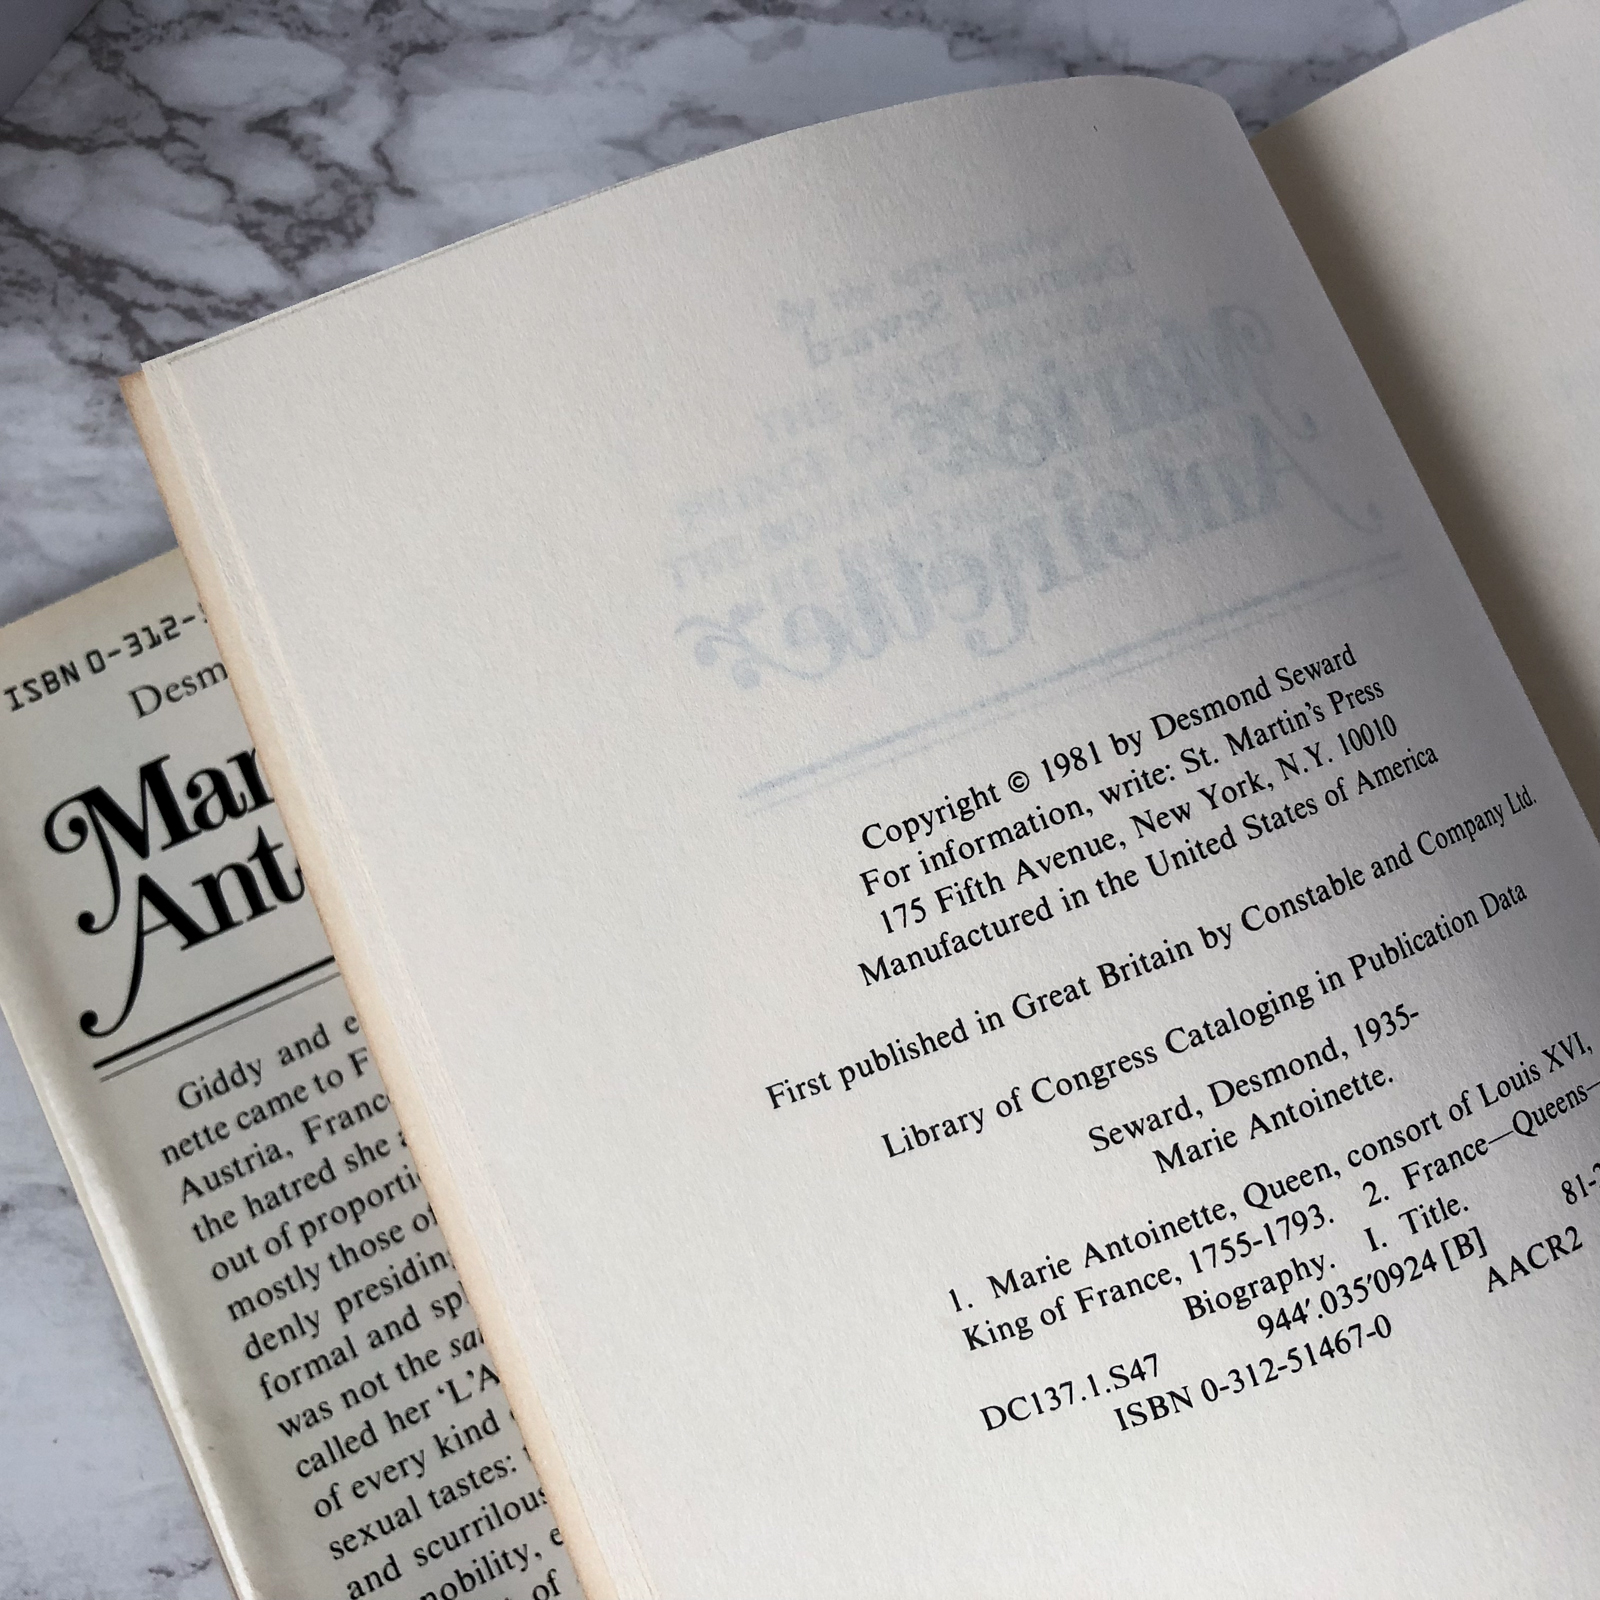 ISBN 0-312-
Desm
Mar
Ant
Giddy and e
nette came to F
Austria, Franc
the hatred she
out of proporti
mostly those of
denly presiding
formal and sp
was not the sa
called her ‘L’A
of every kind
sexual tastes:
and scurrilous
nobility, e
of
Desmond Seward
Marie
Antoinette
Copyright © 1981 by Desmond Seward
For information, write: St. Martin’s Press
175 Fifth Avenue, New York, N.Y. 10010
Manufactured in the United States of America
First published in Great Britain by Constable and Company Ltd.
Library of Congress Cataloging in Publication Data
Seward, Desmond, 1935-
Marie Antoinette.
1. Marie Antoinette, Queen, consort of Louis XVI,
King of France, 1755-1793. 2. France—Queens—
Biography. I. Title.
944′.035′0924 [B] 81-
DC137.1.S47 AACR2
ISBN 0-312-51467-0